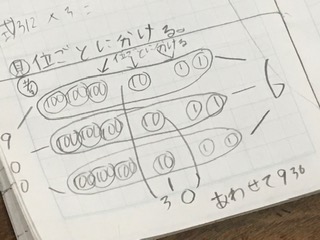 式312×3=
見 位ごとに分ける。
考 位ごとに分ける
100 100 100 10 1 1
9 100 100 100 10 1 1 6
0 100 100 100 10 1 1
0
30
あわせて936